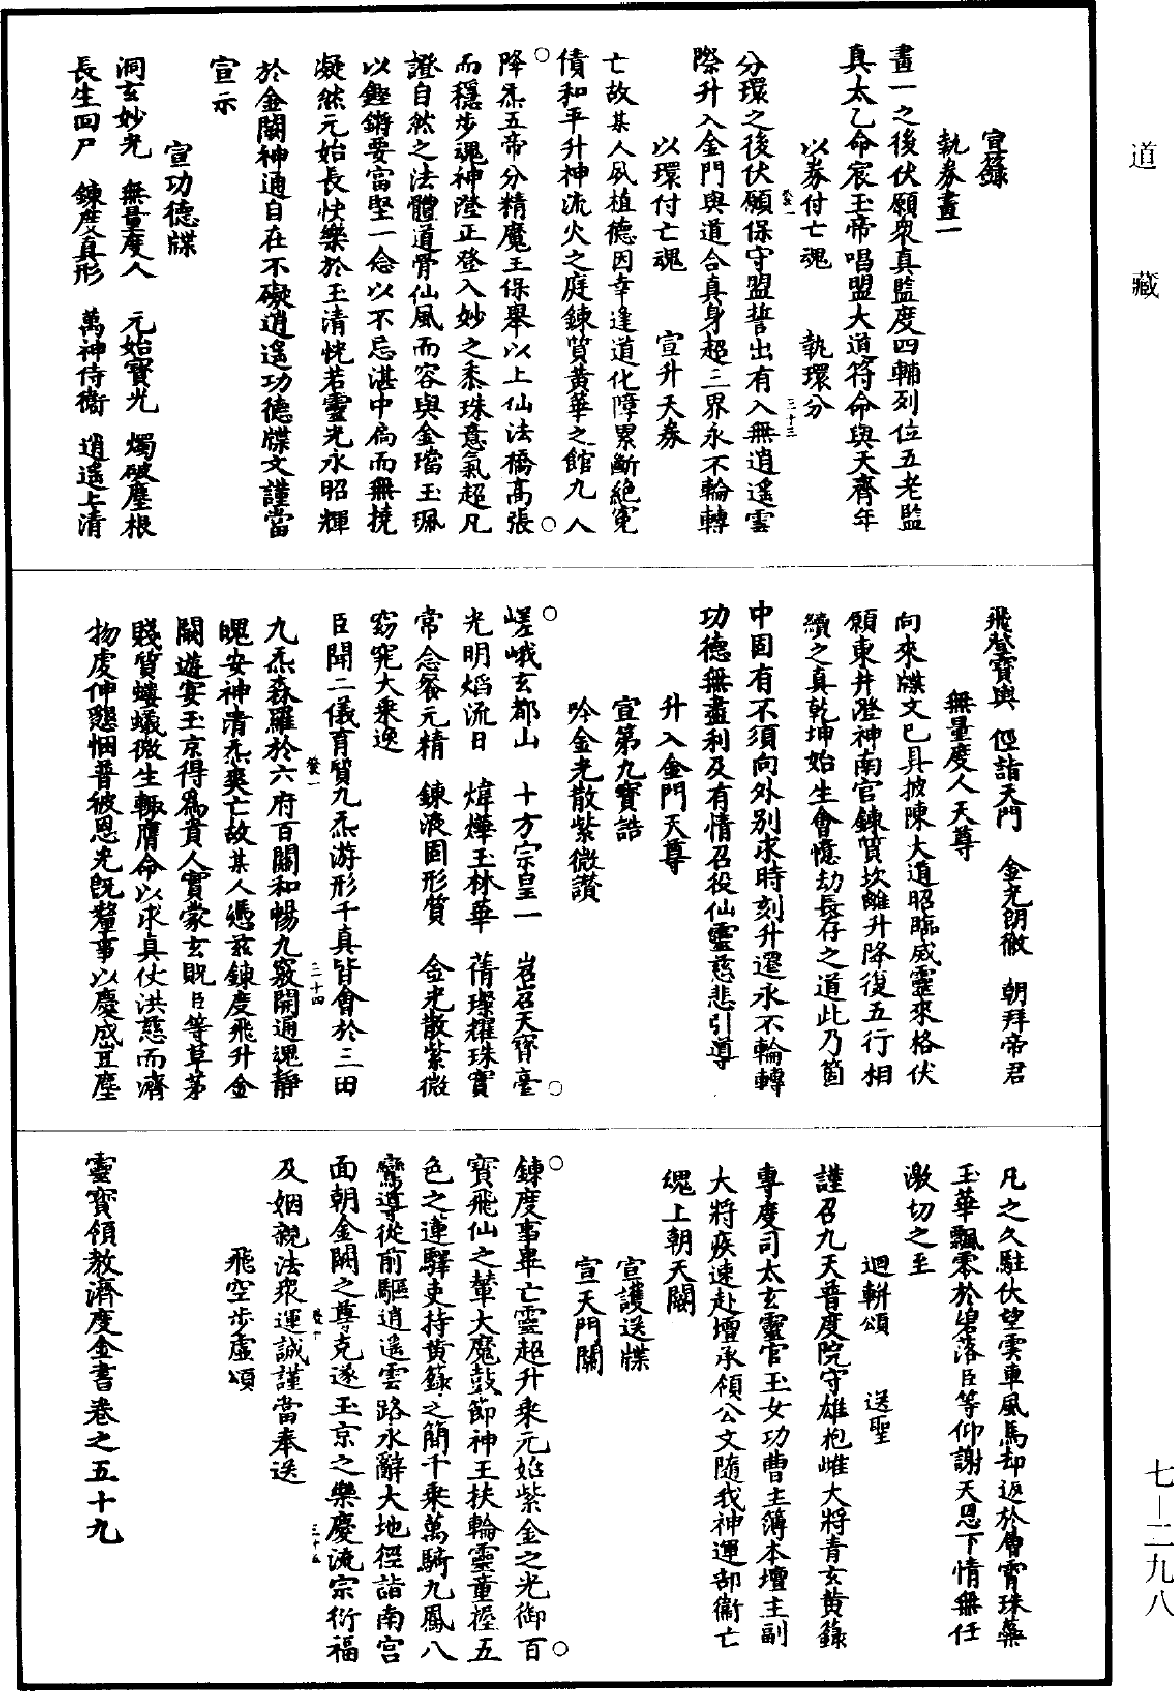 道藏
宣籙
執券畫一
畫一之後伏願衆真監度四輔列位五老監
真太乙命宸玉帝唱盟大道符命與天齊年
以券付亡魂　執環分
分環之後伏願保守盟誓出有入無逍遙雲
際升入金門與道合真身超三界永不輪轉
以環付亡魂　宣升天券
亡故某人夙植德因幸逢道化障累斷絕冤
債和平升神流火之庭鍊質黃華之館九人
降炁五帝分精魔王保舉以上仙法橋高張
而穩步魂神澄正登入妙之黍珠意氣超凡
證自然之法體道骨仙風而容與金璫玉珮
以鏗鏘要富堅一念以不忘湛中扃而無撓
凝然元始長快樂於玉清恍若靈光永昭輝
於金闕神通自在不礙逍遙功德牒文謹當
宣示
宣功德牒
洞玄妙光　無量度人　元始寶光　燭破塵根
長生回尸　鍊度真形　萬神侍衛　逍遙上清
飛登寶輿　徑詣天門　金光朗徹　朝拜帝君
無量度人天尊
向來牒文已具披陳大道昭臨威靈來格伏
願東井澄神南宮鍊質坎離升降復五行相
續之真乾坤始生會憶劫長存之道此乃箇
中固有不須向外別求時刻升遷永不輪轉
功德無盡利及有情召役仙靈慈悲引導
升入金門天尊
宣第九寶誥
吟金光散紫微讚
嵯峨玄都山　十方宗皇一　岧岧天寶臺
光明熖流日　煒燁玉林華　蒨璨耀珠實
常念餐元精　鍊液固形質　金光散紫微
窈窕大乘逸
臣聞二儀育質九炁游形千真皆會於三田
九炁森羅於六府百關和暢九竅開通魂靜
魄安神清炁爽亡故某人憑玆鍊度飛升金
闕遊宴玉京得爲貴人實蒙玄貺臣等草茅
賤質螻蟻微生輙膺命以求真仗洪慈而濟
物虔伸懇悃普彼恩光旣釐事以慶成豈塵
凡之久駐伏望雲車風馬却返於層霄珠藥
玉華飄零於碧落臣等仰謝天恩下情無任
激切之至
迴軿頌　送聖
謹召九天普度院守雄抱雌大將青玄黃籙
專度司太玄靈官玉女功曹主簿本壇主副
大將疾速赴壇承領公文隨我神運部衞亡
魂上朝天闕
宣護送牒
宣天門關
鍊度事畢亡靈超升乘元始紫金之光御百
寶飛仙之輦大魔鼓節神王扶輪靈童握五
色之連驛吏持黃籙之簡千乘萬騎九鳳八
鸞導從前驅逍遙雲路永辭大地徑詣南宮
面朝金闕之尊克遂玉京之樂慶流宗衍福
及姻親法衆運誠謹當奉送
飛空步虛頌
靈寶領教濟度金書卷之五十九
七—二九八